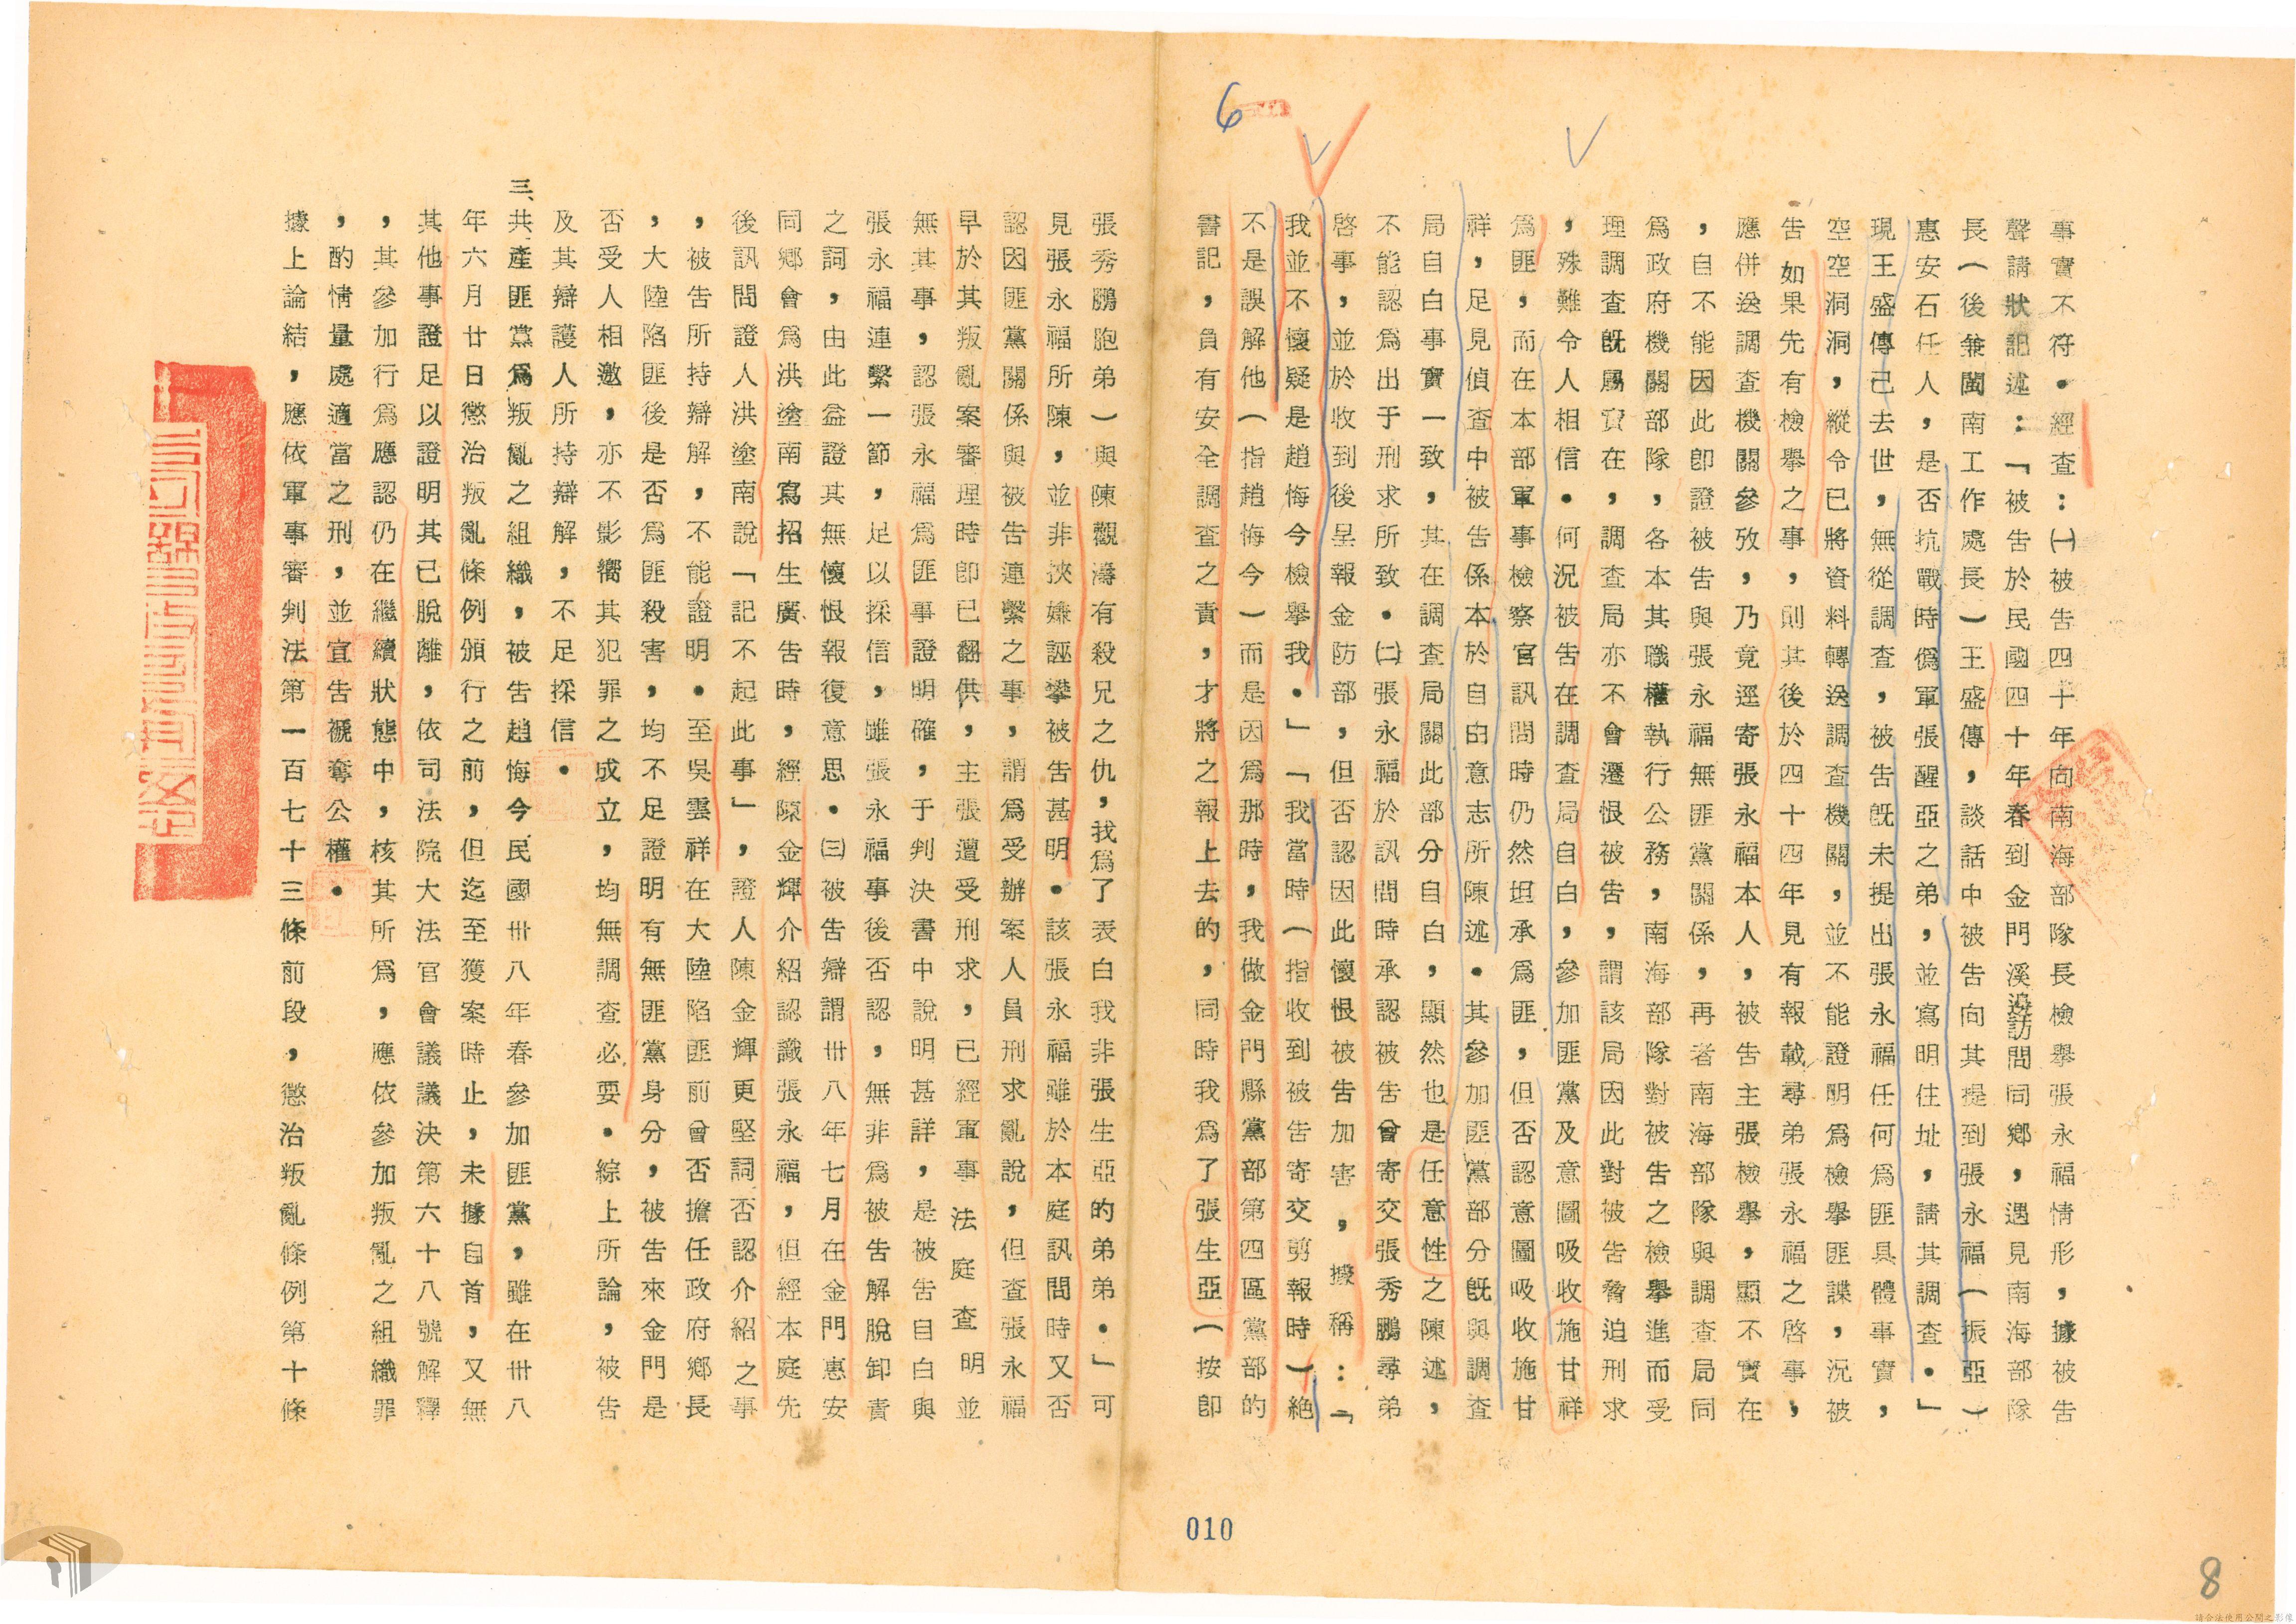 事實不符。經查：㈠被告四十年向南海部隊長檢舉張永福情形，據被告
聲請狀記述：「被告於民國四十年春到金門溪邊訪問同鄉，遇見南海部隊
長（後兼閩南工作處長）王盛傳，談話中被告向其提到張永福（振亞）
惠安石任人，是否抗戰時僞軍張醒亞之弟，並寫明住址，請其調查。」
現王盛傳己去世，無從調查，被告旣未提出張永福任何爲匪具體事實，
空空洞洞，縱令已將資料轉送調查機關，並不能證明爲檢舉匪諜，況被
告如果先有檢舉之事，則其後於四十四年見有報載尋弟張永福之啓事，
應併送調查機關參攷，乃竟逕寄張永福本人，被告主張檢舉，顯不實在
，自不能因此卽證被告與張永福無匪黨關係，再者南海部隊與調查局同
爲政府機關部隊，各本其職權執行公務，南海部隊對被告之檢舉進而受
理調查旣屬實在，調查局亦不會遷恨被告，謂該局因此對被告脅迫刑求
，殊難令人相信。何況被告在調查局自白，參加匪黨及意圖吸收施甘祥
爲匪，而在本部軍事檢察官訊問時仍然坦承爲匪，但否認意圖吸收施甘
祥，足見偵查中被告係本於自由意志所陳述。其參加匪黨部分旣與調查
局自白事實一致，其在調查局關此部分自白，顯然也是任意性之陳述，
不能認爲出于刑求所致。㈡張永福於訊問時承認被告曾寄交張秀鵬尋弟
啓事，並於收到後呈報金防部，但否認因此懷恨被告加害，據稱：「
我並不懷疑是趙悔今檢舉我。」「我當時（指收到被告寄交剪報時）絕
不是誤解他（指趙悔今）而是因爲那時，我做金門縣黨部第四區黨部的
書記，負有安全調查之責，才將之報上去的，同時我爲了張生亞（按卽
張秀鵬胞弟）與陳觀濤有殺兄之仇，我爲了表白我非張生亞的弟弟。」可
見張永福所陳，並非挾嫌誣攀被告甚明。該張永福雖於本庭訊問時又否
認因匪黨關係與被告連繫之事，謂爲受辦案人員刑求亂說，但查張永福
早於其叛亂案審理時卽已翻供，主張遭受刑求，已經軍事法庭查明並
無其事，認張永福爲匪事證明確，于判決書中說明甚詳，是被告自白與
張永福連繫一節，足以採信，雖張永福事後否認，無非爲被告解脫卸責
之詞，由此益證其無懷恨報復意思。㈢被告辯謂卅八年七月在金門惠安
同鄉會爲洪塗南寫招生廣告時，經陳金輝介紹認識張永福，但經本庭先
後訊問證人洪塗南說「記不起此事」，證人陳金輝更堅詞否認介紹之事
，被告所持辯解，不能證明。至吳雲祥在大陸陷匪前曾否擔任政府鄉長
，大陸陷匪後是否爲匪殺害，均不足證明有無匪黨身分，被告來金門是
否受人相邀，亦不影嚮其犯罪之成立，均無調查必要。綜上所論，被告
及其辯護人所持辯解，不足採信。
三、共產匪黨爲叛亂之組織，被告趙悔今民國卅八年春參加匪黨，雖在卅八
年六月廿日懲治叛亂條例頒行之前，但迄至獲案時止，未據自首，又無
其他事證足以證明其已脫離，依司法院大法官會議議決第六十八號解釋
，其參加行爲應認仍在繼續狀態中，核其所爲，應依參加叛亂之組織罪
，酌情量處適當之刑，並宣告褫奪公權。
據上論結，應依軍事審判法第一百七十三條前段，懲治叛亂條例第十條
6
010
8
請合法使用公開之影像